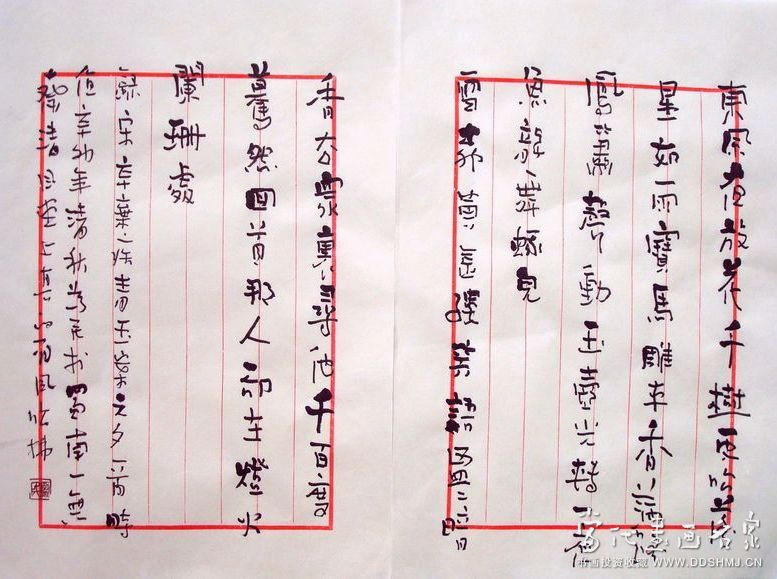 東風夜放花千樹更吹落
星如雨寶馬雕車香滿路
鳳簫聲動玉壺光轉一夜
魚龍舞蛾兒
雪柳黃金縷笑語盈盈暗
香去眾裏尋他千百度
驀然回首那人卻在燈火
闌珊處
錄宋辛棄疾青玉案元夕一首時
值辛卯年清秋
清風堂上
当代书画名家
书画投资收藏 WWW.DDSHMJ.CN